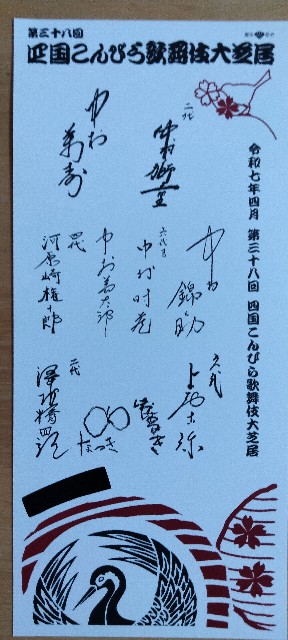 第三十八回
四国こんぴら歌舞伎大芝居
令和七年四月　第三十八回　四国こんぴら歌舞伎大芝居
二代
中村獅童
中村萬壽
中村錦之助
六代目
中村時蔵
中村萬太郎
四代
河原崎権十郎
六代
上村吉弥
はるき
なつき
二代
澤村精四郎